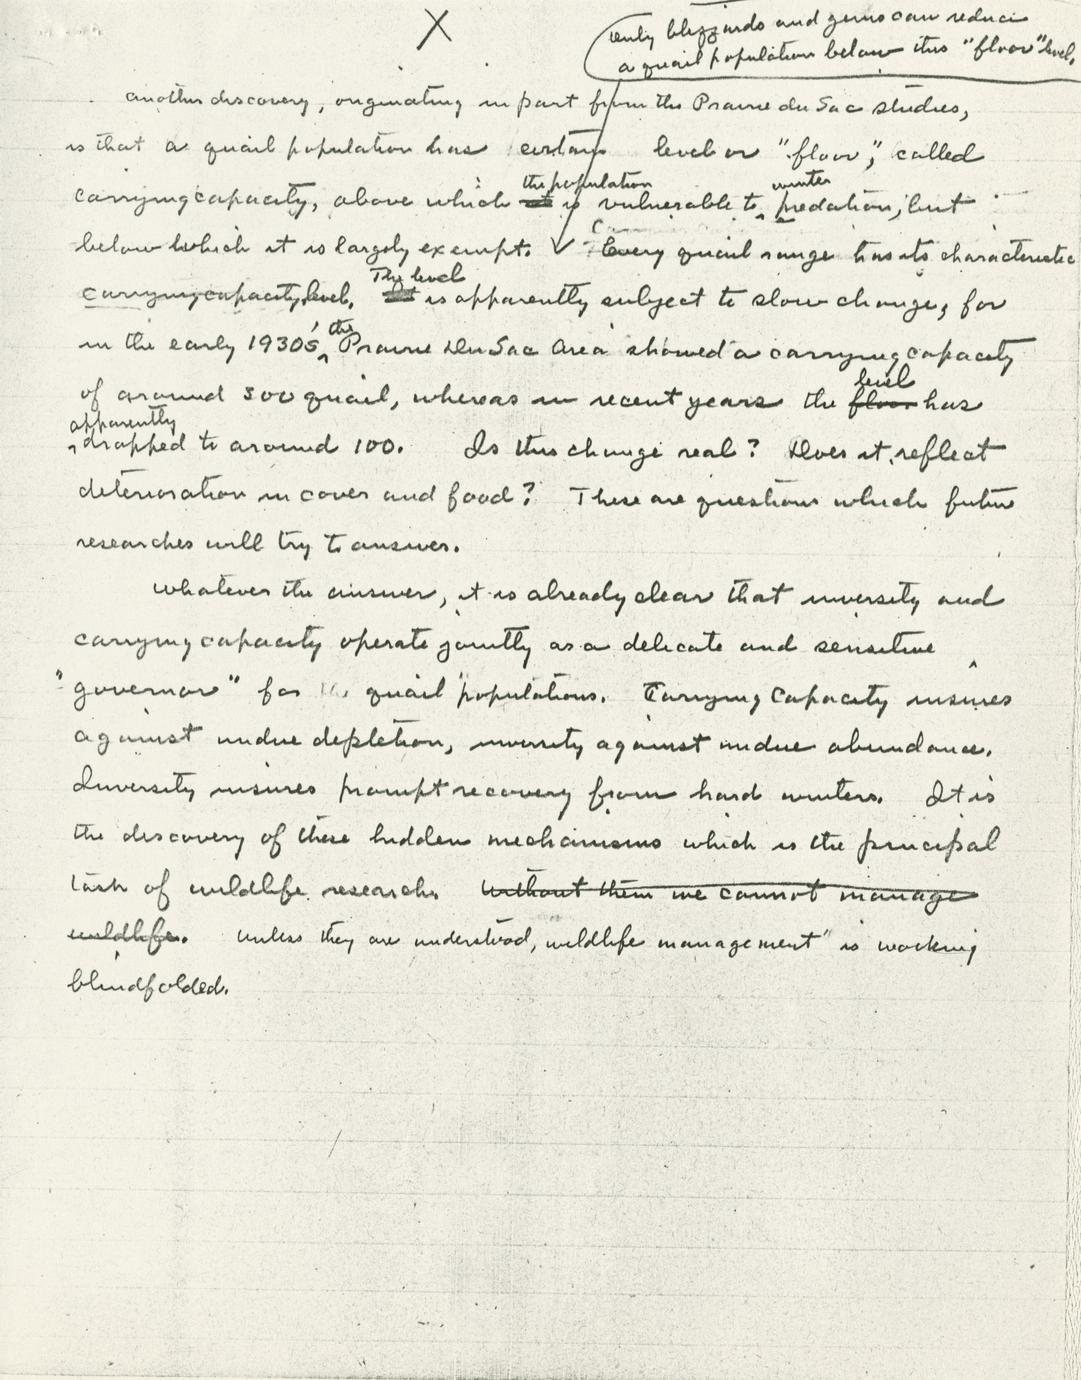 X
Only blizzards and guns can reduce
a quail population below this "floor" level.
another discovery, originating in part from the Prairie du Sac studies,
is that a quail population has certain level or "floor", called
the population winter
carrying capacity, above which it is vulnerable to predation, but
below which it is largely exempt. Every quail range has its characteristic
The level
carrying capacity level. It is apparently subject to slow change, for
the
in the early 1930s, Prairie Du Sac Area showed a carrying capacity
level
of around 300 quail, whereas in recent years the floor has
apparently
dropped to around 100. Is this change real? Does it reflect
deterioration in cover and food? These are questions which future
researches will try to answer.
Whatever the answer, it is already clear that inversity and
carrying capacity operate jointly as a delicate and sensitive
"governor" for quail populations. Carrying capacity insures
against undue depletion, inversity against undue abundance.
Inversity insures prompt recovery from hard winters. It is
the discovery of these hidden mechanisms which is the principal
task of wildlife research. without them we cannot manage
wildlife. Unless they are understood, wildlife management" is working
blindfolded.